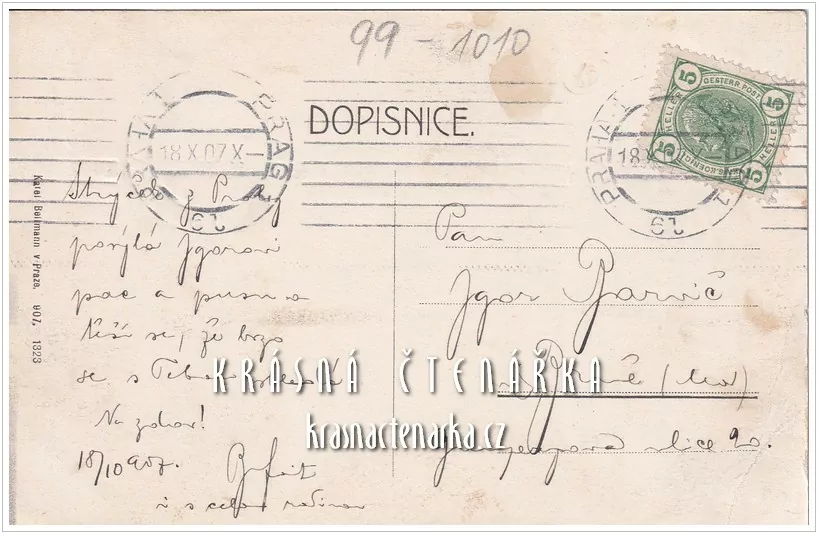 99-1010
DOPISNICE.
PRAHA 1 PRAG
18 X 07 X-
61
PRAHA 1
18
61
5 GESTERR. POST 5
HELLER HELLER
5 5
Strýček z Prahy
posýlá Jgorovi
pac a pusu a
těší se, že brzo
se s Tebou
Na zdar!
18/10 907.
i s celou rodinou
Pan
Jgor Parvič
v Brně (Mor)
ulice 20.
Karel Bellmann v Praze, 907, 1323
KRÁSNÁ ČTENÁŘKA
krasnactenarka.cz